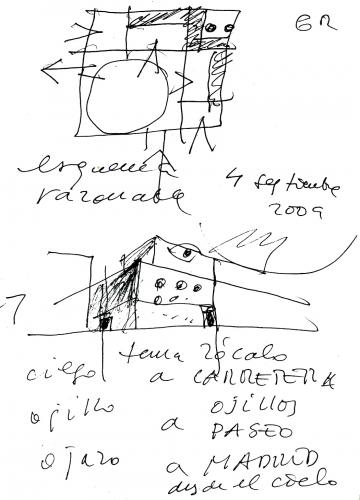 GR
esquema
razonable
4 septiembre
2009
tema zócalo
ciego a CARRETERA
ojillo a OJILLOS
PASEO
ojazo a MADRID
desde el cielo